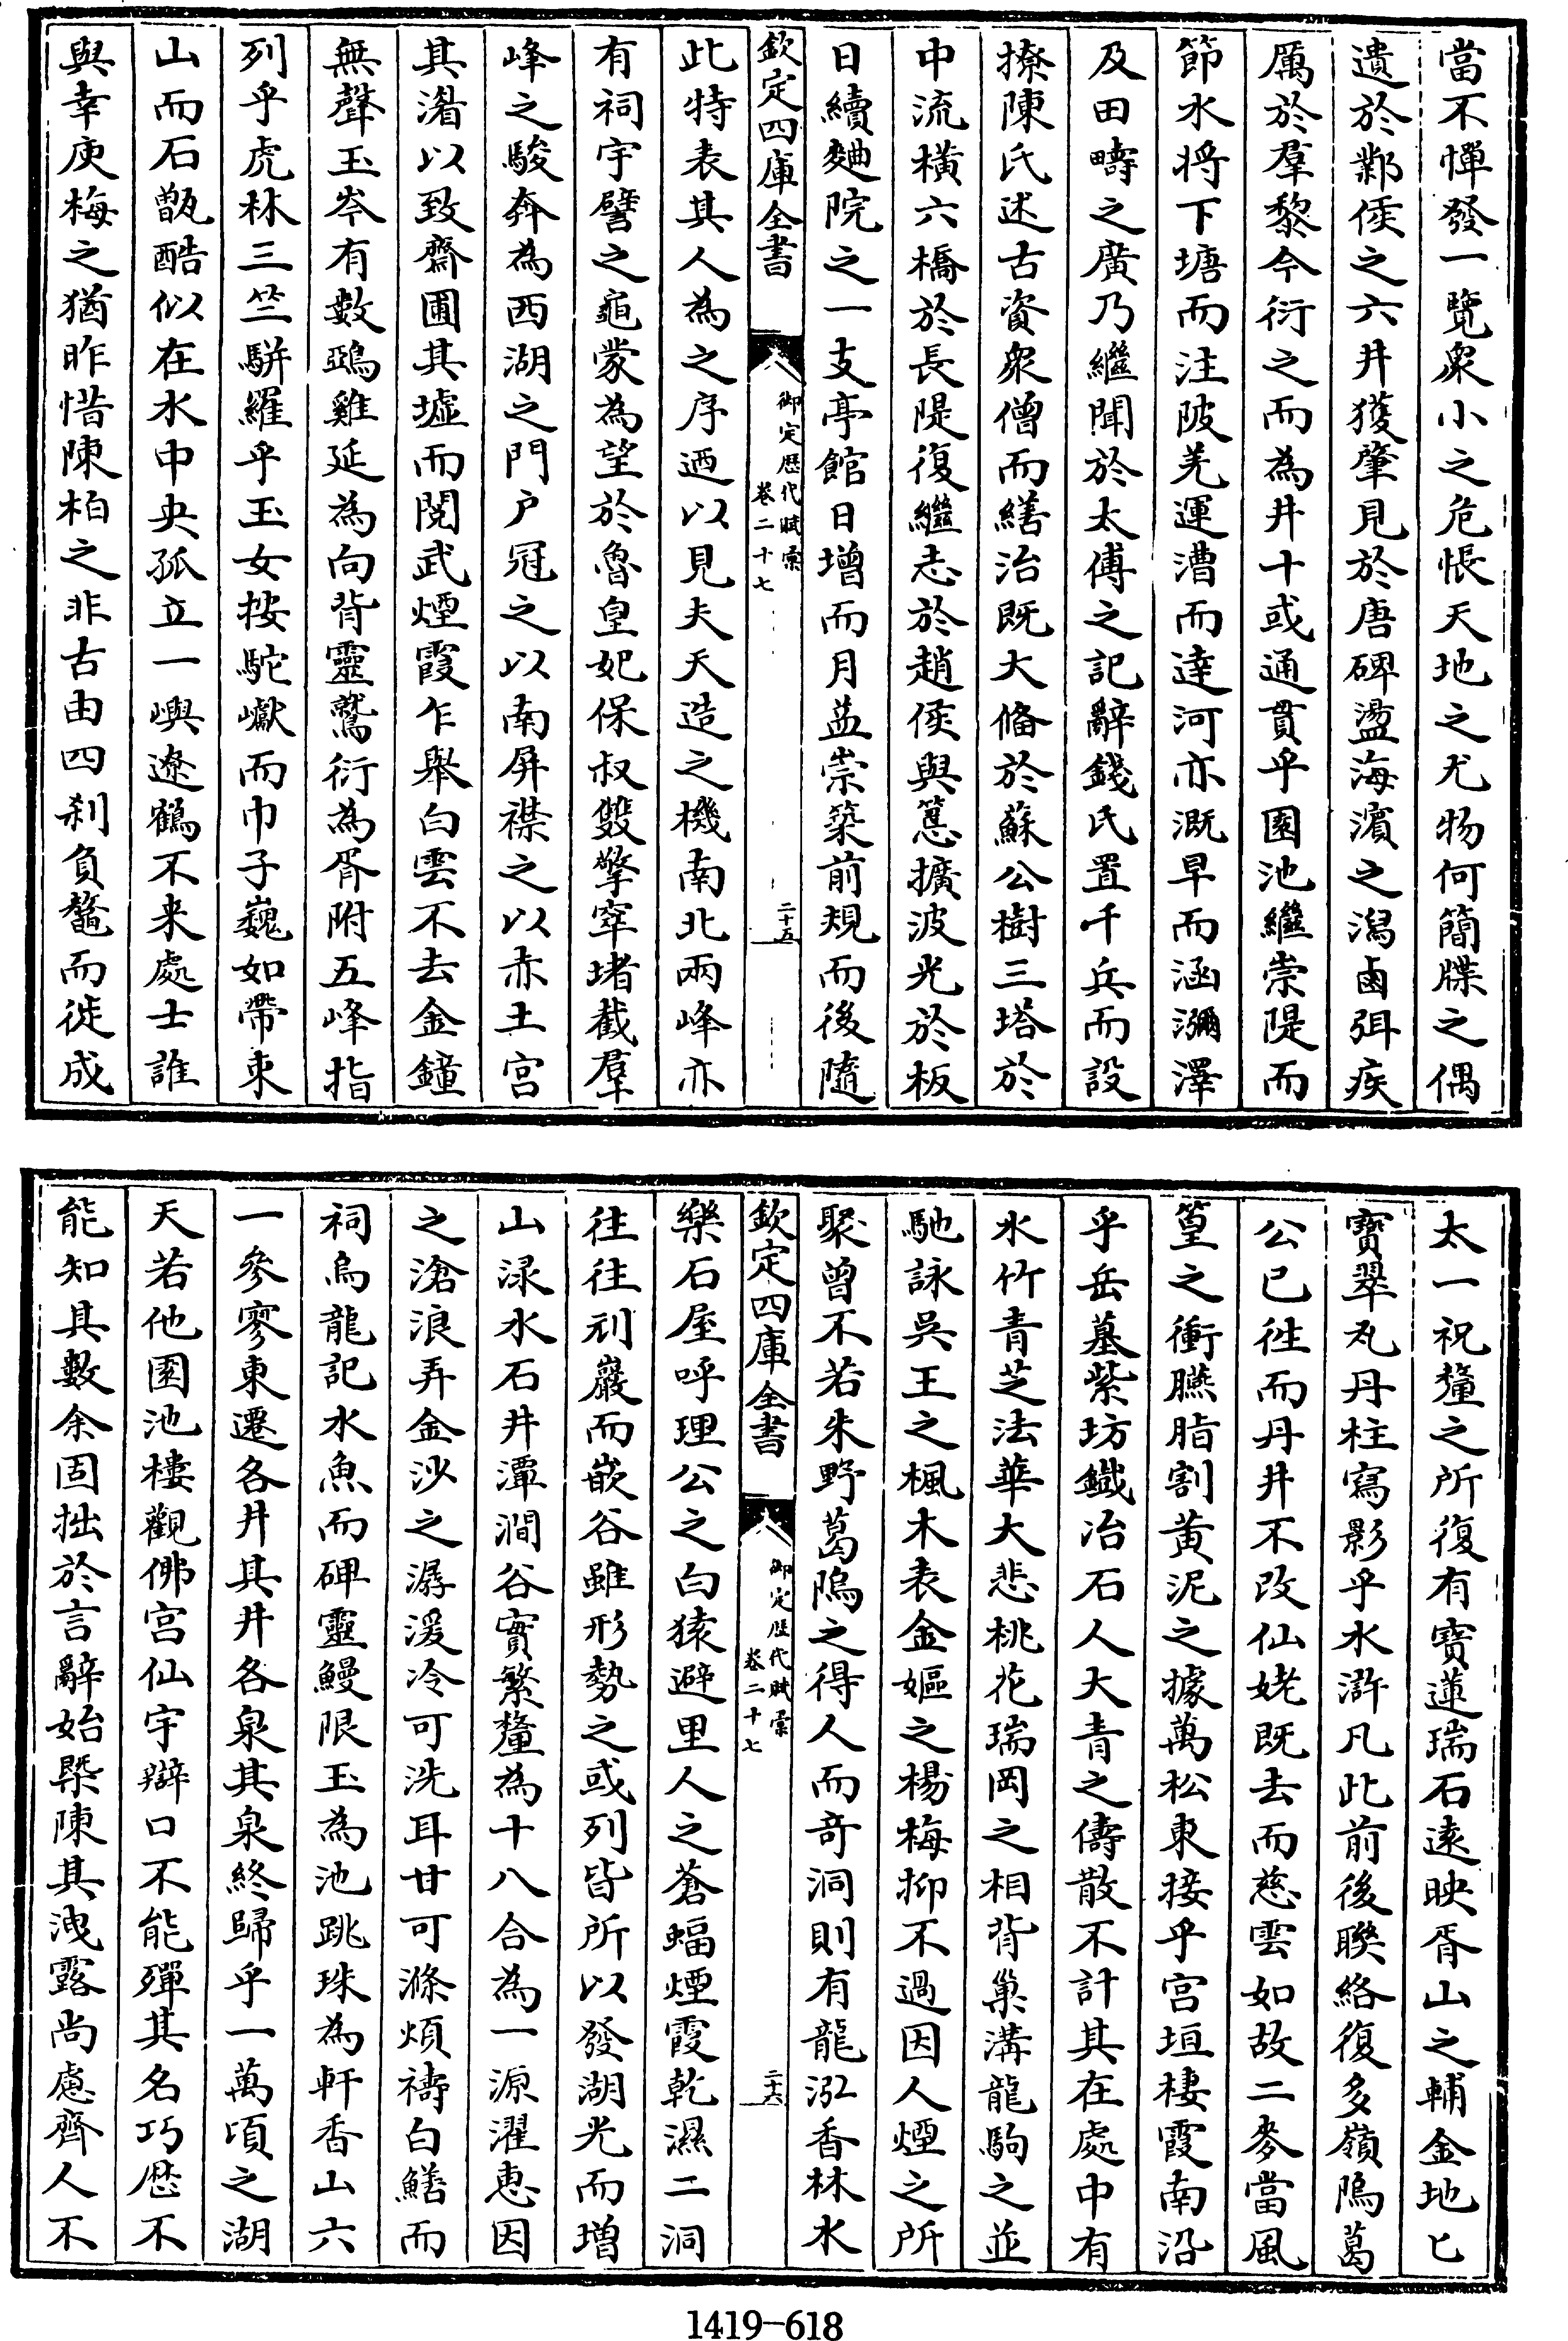 當不憚發一覽衆小之危悵天地之尤物何簡牒之偶
遺於鄴侯之六井獲肇見於唐碑盪海濵之潟鹵弭疾
厲於羣黎今衍之而為井十或通貫乎園池繼崇隄而
節水将下塘而注陂羌運漕而達河亦溉旱而涵瀰澤
及田疇之廣乃繼聞於太傅之記辭錢氏置千兵而設
撩陳氏述古資衆僧而繕治既大脩於蘇公樹三塔於
中流橫六橋於長隄復繼志於趙侯與蒠擴波光於板
日續麯院之一支亭館日增而月益崇築前規而後隨
欽定四庫全書
御定歴代賦彚
卷二十七
二十五
此特表其人為之序迺以見夫天造之機南北兩峰亦
有祠宇譬之龜蒙為望於魯皇妃保叔雙擎窣堵截羣
峰之駿奔為西湖之門户冠之以南屏襟之以赤土宫
其潴以致齋圃其墟而閱武煙霞乍舉白雲不去金鐘
無聲玉岑有數鵶雞延為向背靈鷲衍為胥附五峰指
列乎虎林三竺駢羅乎玉女按駝巘而巾子巍如帶束
山而石甑酷似在水中央孤立一嶼遼鶴不来處士誰
與幸庾梅之猶昨惜陳柏之非古由四刹負鼇而徙成
太一祝釐之所復有寶蓮瑞石逺映胥山之輔金地七
寶翠丸丹柱寫影乎水滸凡此前後聨絡復多嶺隖葛
公已徃而丹井不改仙姥既去而慈雲如故二麥當風
篁之衝臙脂割黄泥之據萬松東接乎宫垣棲霞南沿
乎岳墓紫坊鐵冶石人大青之儔散不計其在處中有
水竹青芝法華大悲桃花瑞岡之相背巢溝龍駒之並
馳詠吳王之楓木表金嫗之楊梅抑不過因人煙之所
聚曽不若朱野葛隖之得人而竒洞則有龍泓香林水
欽定四庫全書
御定歴代賦彚
卷二十七
二十六
樂石屋呼理公之白猿避里人之蒼蝠煙霞乾濕二洞
往往刓巖而嵌谷雖形勢之或列皆所以發湖光而增
山渌水石井潭澗谷實繁釐為十八合為一源濯惠因
之滄浪弄金沙之潺湲冷可洗耳甘可滌煩禱白鱔而
祠烏龍記水魚而碑靈鰻限玉為池跳珠為軒香山六
一參寥東遷各井其井各泉其泉終歸乎一萬頃之湖
天若他園池樓觀佛宫仙宇辯口不能殫其名巧歴不
能知其數余固拙於言辭始槩陳其洩露尚慮齊人不
1419-618